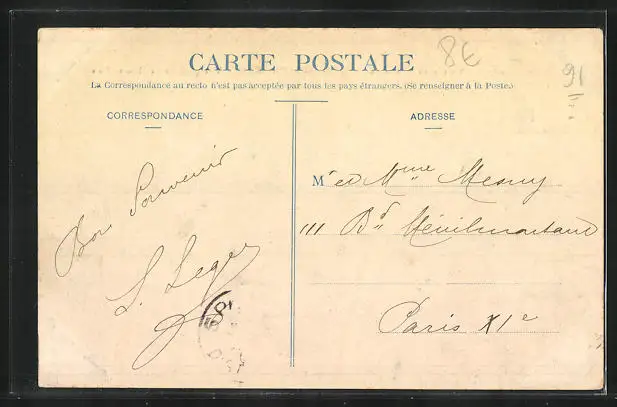 CARTE POSTALE
8€
91
La Correspondance au recto n'est pas acceptée par tous les pays étrangers. (Se renseigner à la Poste.)
CORRESPONDANCE
ADRESSE
Bon Souvenir
L. Leger
Mr et Mme Mesny
111 Bd Ménilmontant
Paris XIe